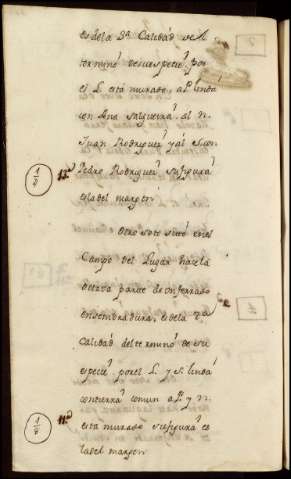 es de la 3ª Calidad de el
termino de su espezie por
el L. está murado, al P. linda
con Ana Salgueira al N.
Juan Rodriguez y al S. con
Pedro Rodriguez su figura
es la del margen
Otro soto sito en el
Campo del Lugar haze la
octava parte de un ferrado
en sembradura, es de la
Calidad del termino de su
espezie por el L. y S. linda
con tierra comun al P. y N.
está murado su figura es
la del margen